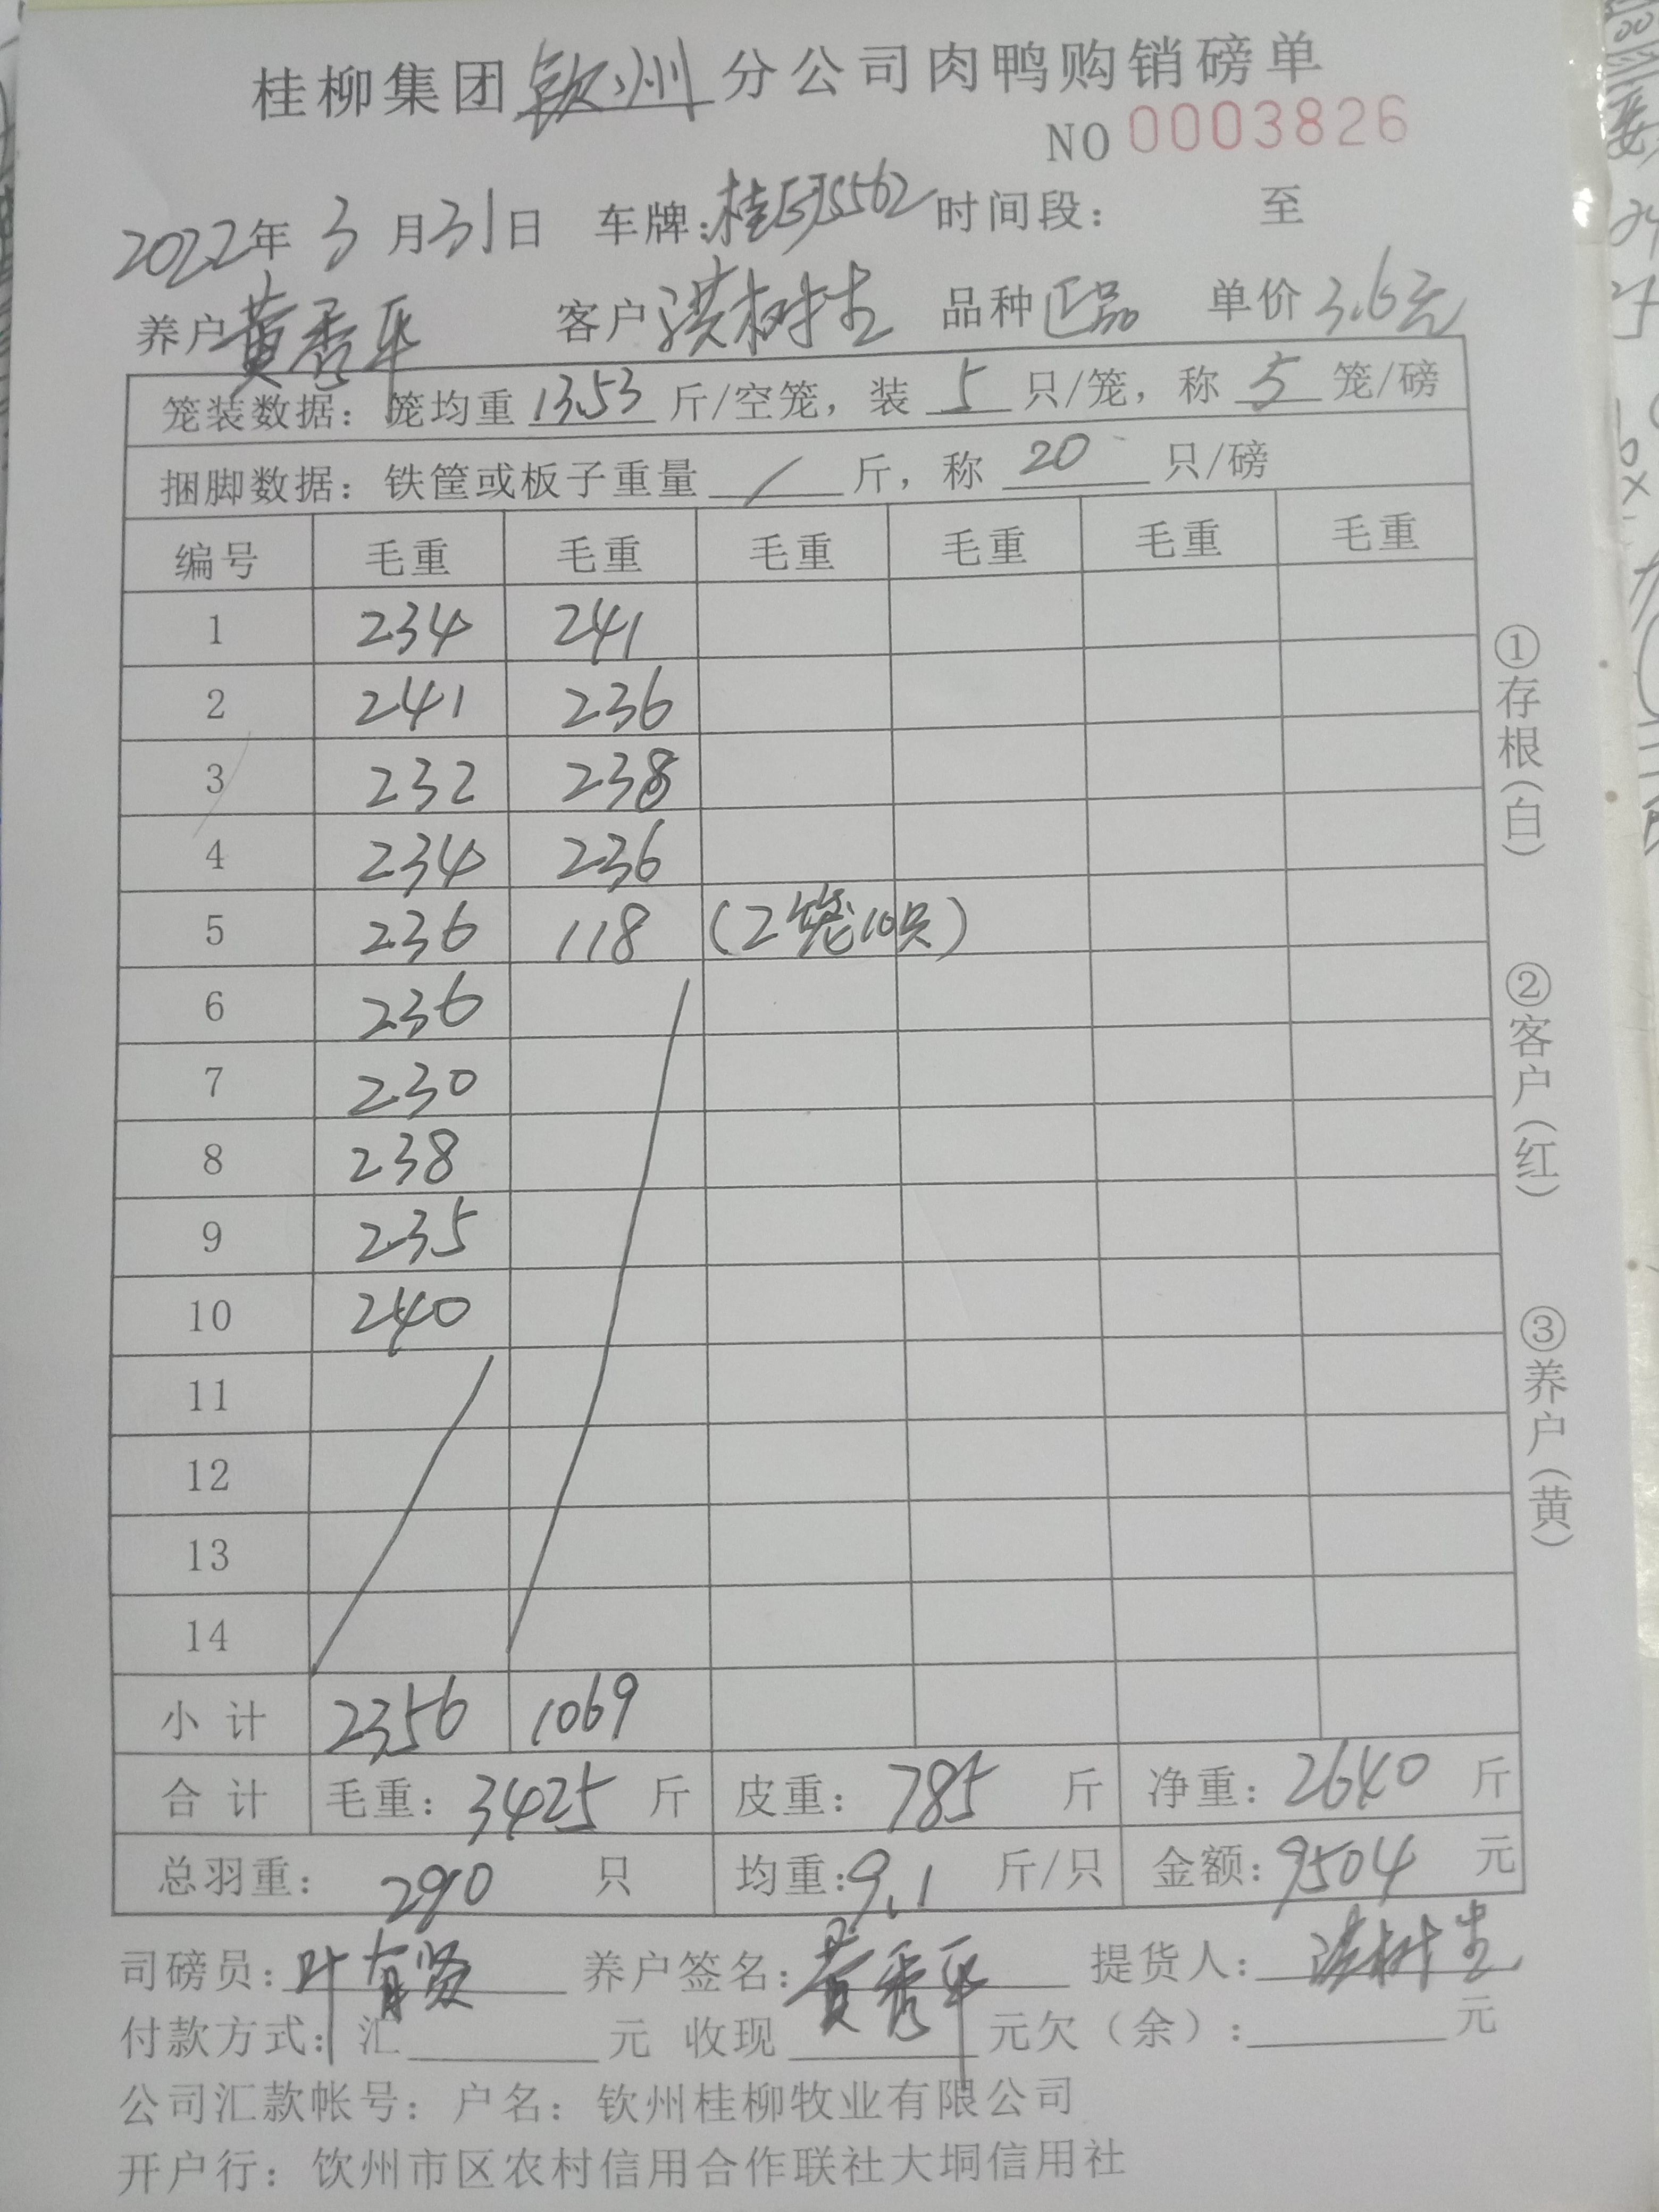 桂柳集团钦州分公司肉鸭购销磅单
NO 0003826
2022年 3月31日 车牌: 时间段: 至
养户黄秀平 客户洪树生 品种正品 单价3.6元
笼装数据: 笼均重 13.53 斤/空笼, 装 5 只/笼, 称 5 笼/磅
捆脚数据: 铁筐或板子重量 / 斤, 称 20 只/磅
编号 毛重 毛重 毛重 毛重 毛重 毛重
1 234 241
2 241 236
3 232 238
4 234 236
5 236 118 (2笼10只)
6 236
7 230
8 238
9 235
10 240
11
12
13
14
小计 2356 1069
合计 毛重: 3425 斤 皮重: 785 斤 净重: 2640 斤
总羽重: 290 只 均重: 9.1 斤/只 金额: 9504 元
司磅员: 叶有贤 养户签名: 黄秀平 提货人: 洪树生
付款方式: 汇 元 收现 元欠(余): 元
公司汇款帐号: 户名: 钦州桂柳牧业有限公司
开户行: 饮州市区农村信用合作联社大垌信用社
①存根(白)
②客户(红)
③养户(黄)